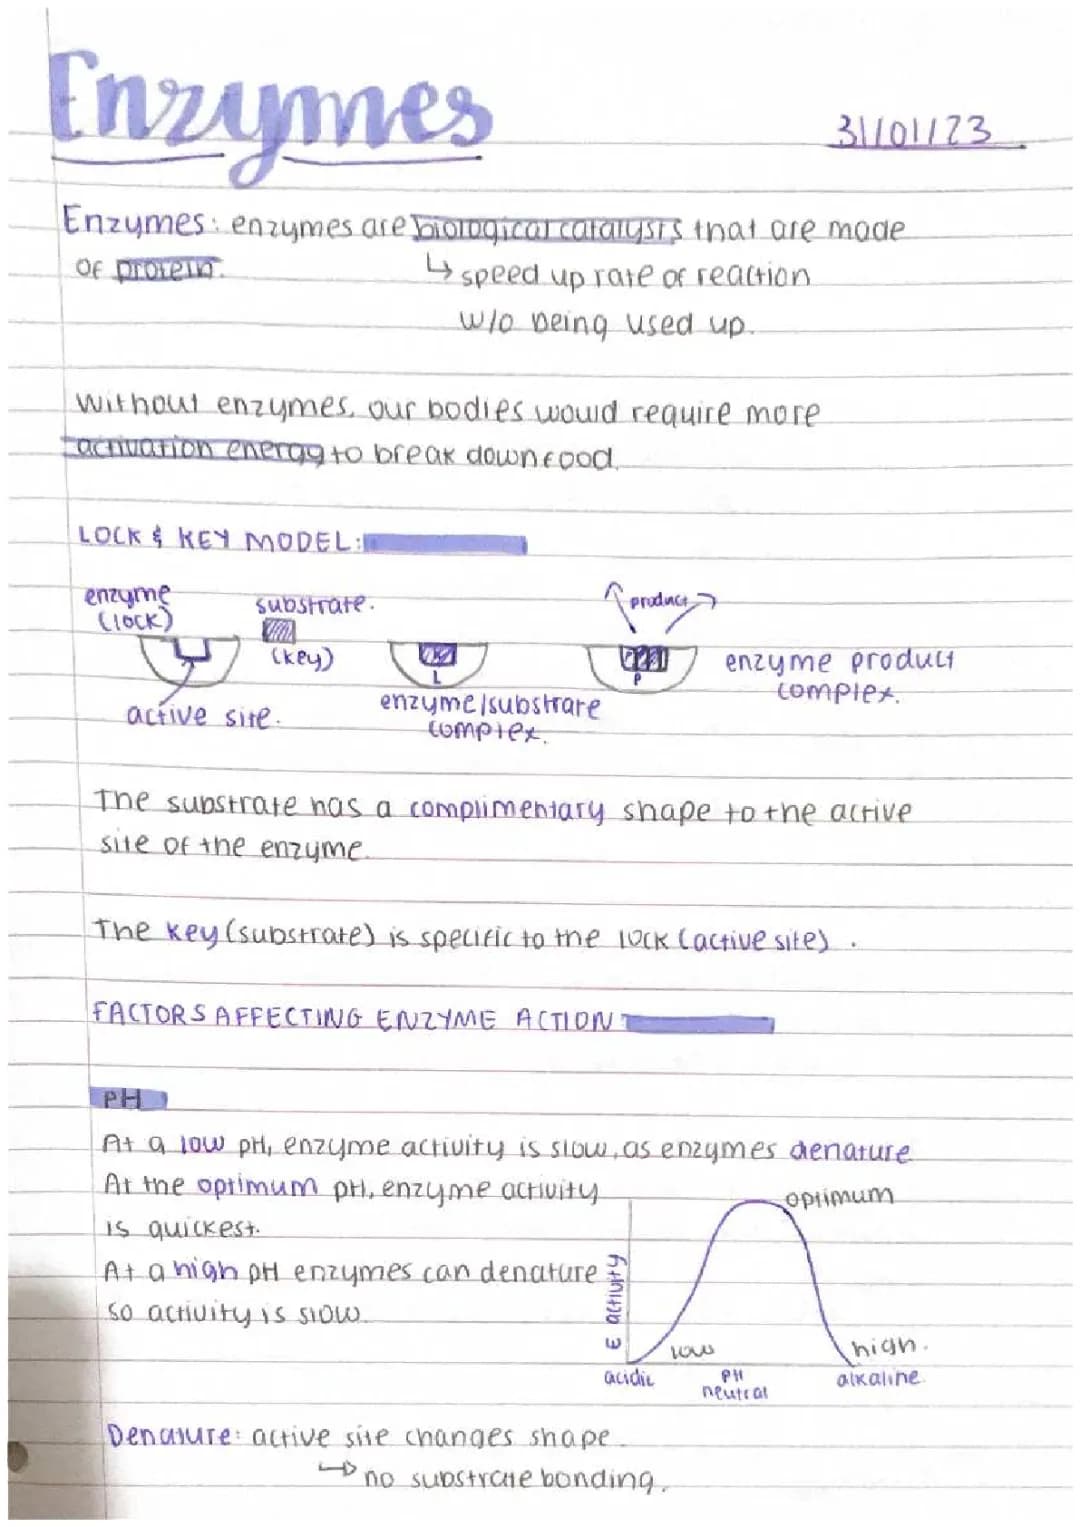 Enzymes
31/01/23
Enzymes: enzymes are biological catalysts that are made
of protein.
↳ speed up rate of reaction
w/o being used up.
Without enzymes, our bodies would require more
activation energy to break down food.
LOCK & KEY MODEL:
enzyme
(lock)
substrate.
(key)
active site.
enzyme/substrate
complex.
product
P
enzyme product
complex.
The substrate has a complimentary shape to the active
site of the enzyme.
The key (substrate) is specific to the lock (active site).
FACTORS AFFECTING ENZYME ACTION
PH
At a low pH, enzyme activity is slow, as enzymes denature
At the optimum pH, enzyme activity
is quickest.
At a high pH enzymes can denature
so activity is slow.
optimum
E activity
low
high.
acidic
PH
neutral
alkaline
Denature: active site changes shape.
↳ no substrate bonding.